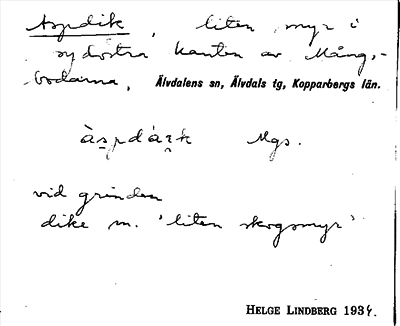 Aspdik, liten myr i
sydöstra kanten av Mång-
bodarna, Älvdalens sn, Älvdals tg, Kopparbergs län.
Mgs.
vid grinden
dike m. 'liten skogsmyr'
HELGE LINDBERG 1934.